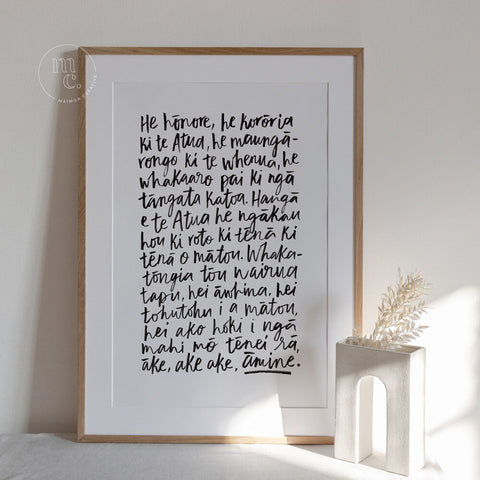 mc
co
MAIMOA CREATIVE
He hōnore, he korōria
ki te Atua, he maungā-
rongo ki te whenua, he
whakaaro pai ki ngā
tāngata katoa. Hangā
e te Atua he ngākau
hou ki roto ki tēnā ki
tēnā o mātou. Whaka-
tōngia tōu wairua
tapu, hei āwhina, hei
tohutohu i a mātou,
hei ako hoki i ngā
mahi mō tēnei rā,
āke, ake ake, āmine.